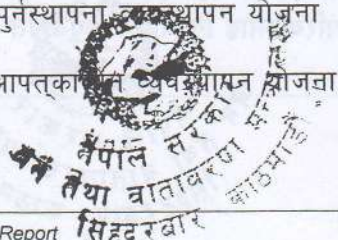 पुर्नस्थापना व्यवस्थापन योजना
आपत्कालिन व्यवस्थापन योजना
नेपाल सरकार
वन तथा वातावरण मन्त्रालय
सिंहदरबार काठमाडौं
Report